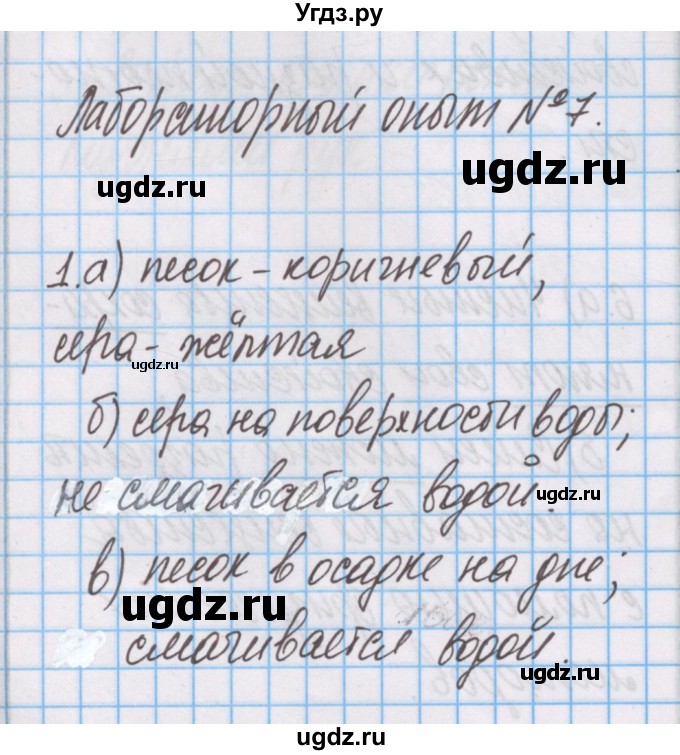 Угдз.ру
Лабораторный опыт №7.
ugdz.ru
ugdz.ru
1.а) песок - коричневый,
сера - жёлтая
ugdz.ru
б) сера на поверхности воды;
не смачивается водой.
ugdz.ru
в) песок в осадке на дне;
ugdz.ru
смачивается водой.
ugdz.ru
ugdz.ru